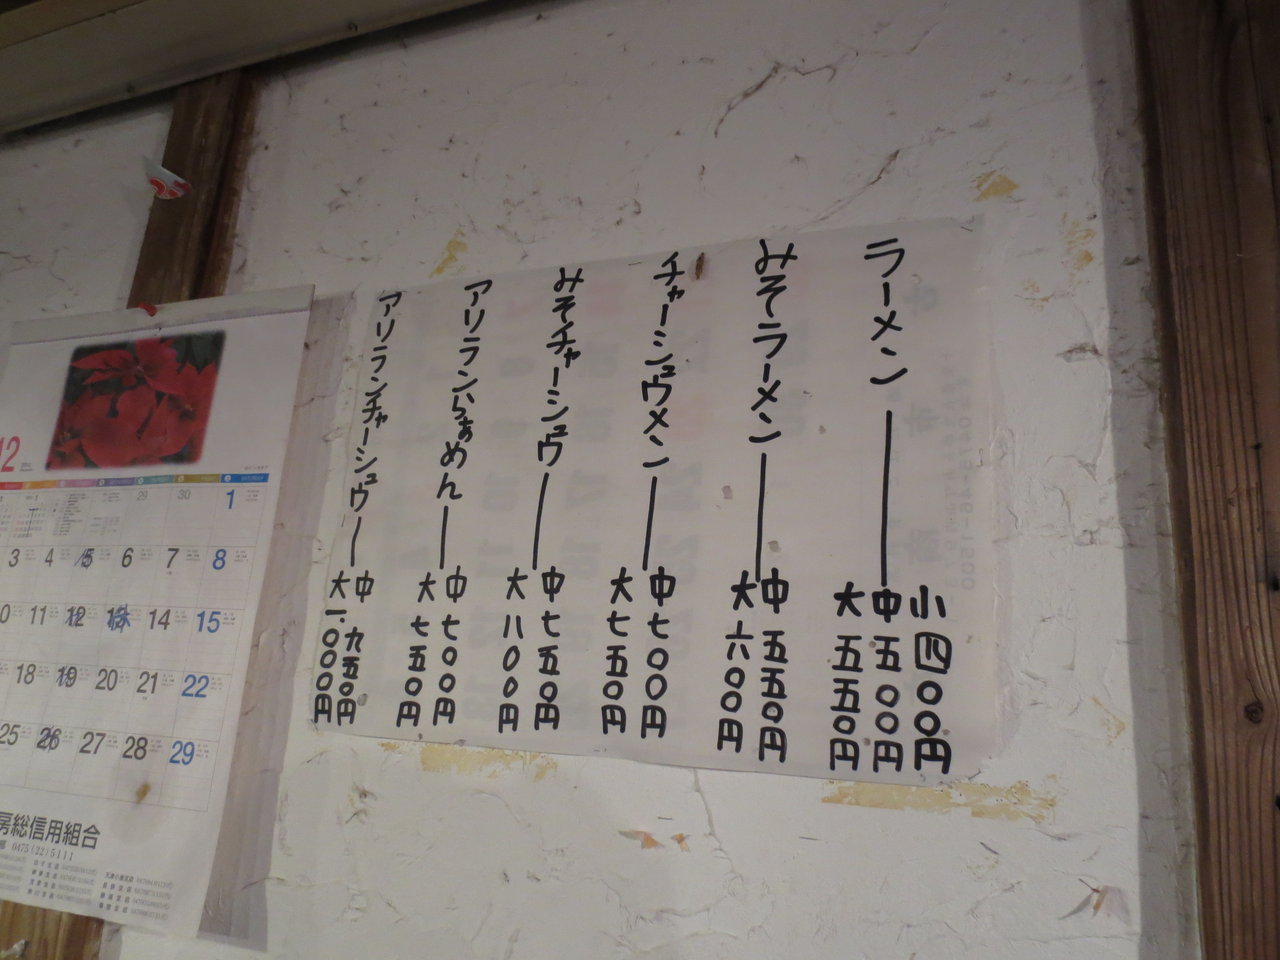 ラーメン
小四〇〇円
中五〇〇円
大五五〇円
みそラーメン
中五五〇円
大六〇〇円
チャーシュウメン
中七〇〇円
大七五〇円
みそチャーシュウ
中七五〇円
大八〇〇円
アリランらぁめん
中七〇〇円
大七五〇円
アリランチャーシュウ
中九五〇円
大一.〇〇〇円
12
29 30 1
3 4 5 6 7 8
11 12 13 14 15
18 19 20 21 22
25 26 27 28 29
房総信用組合
0475(22)5111